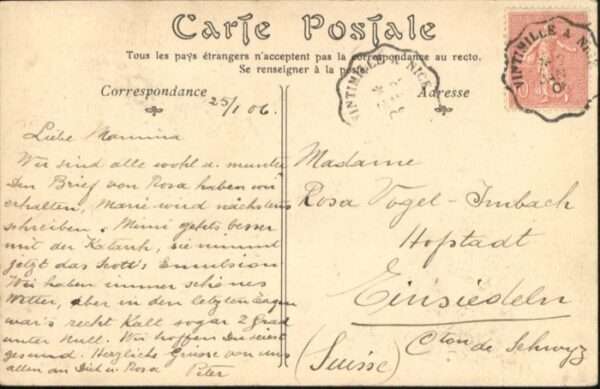 Carte Postale
Tous les pays étrangers n'acceptent pas la correspondance au recto.
Se renseigner à la poste.
Correspondance
Adresse
VINTIMILLE A NICE
VINTIMILLE A NICE
25/1 06.
Liebe Mamma
Wir sind alle wohl u. munter
Den Brief von Rosa haben wir
erhalten, Marie wird nächstens
schreiben. Mimi gehts besser
mit der Katarrh, sie nimmt
jetzt das Scott's Emulsion
Wir haben immer schönes
Wetter, aber in den letzten Tagen
war's recht Kalt sogar 2 Grad
unter Null. Wir hoffen Du seiest
gesund. Herzliche Grüsse von uns
allen an Dich u. Rosa Peter
Madame
Rosa Vogel-Imbach
Hofstadt
Einsiedeln
Cton de Schwyz
(Suisse)